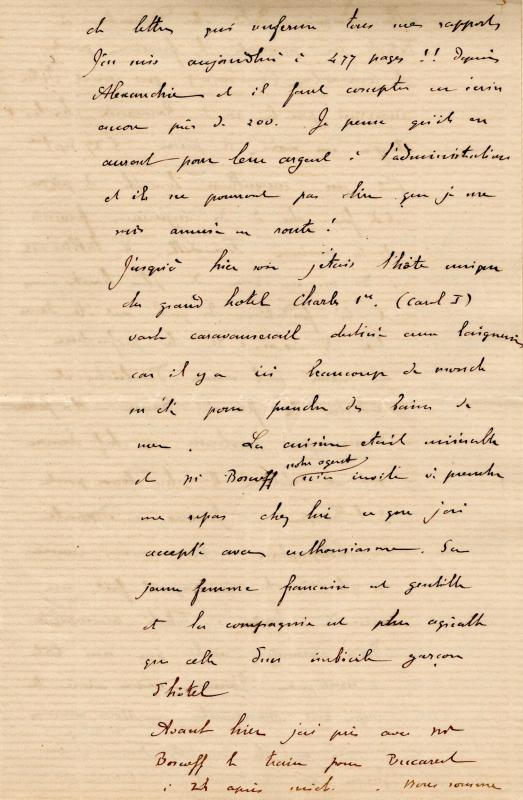 de lettres qui renferme tous mes rapports
J'en suis aujourd'hui à 477 pages !! depuis
Alexandrie et il faut compter en écrire
encore près de 200. Je pense qu'ils en
auront pour leur argent à l'administration
et ils ne pourront pas dire que je me
suis amusé en route !
Jusqu'à hier soir j'étais l'hôte unique
du grand hotel Charles 1er. (Carol I)
vaste caravanserail destiné aux baigneurs
car il y a ici beaucoup de monde
en été pour prendre des bains de
mer. La cuisine etait misérable
notre agent
et Mr Boscoff m'a invité à prendre
mes repas chez lui ce que j'ai
accepté avec enthousiasme. Sa
jeune femme francaise est gentille
et la compagnie est plus agréable
que celle d'un imbécile garçon
d'hôtel
Avant hier j'ai pris avec Mr
Boscoff le train pour Bucarest
à 2h après midi. Nous sommes